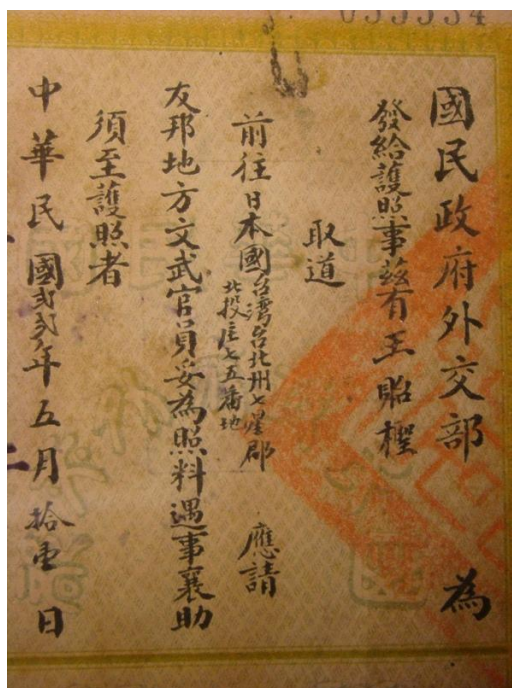 033334
國民政府外交部 為
發給護照事茲有王昭樫
取道
前往日本國台湾台北州七星郡
北投庄七五番地 應請
友邦地方文武官員妥為照料遇事襄助
須至護照者
中華民國貳貳年五月拾壹日